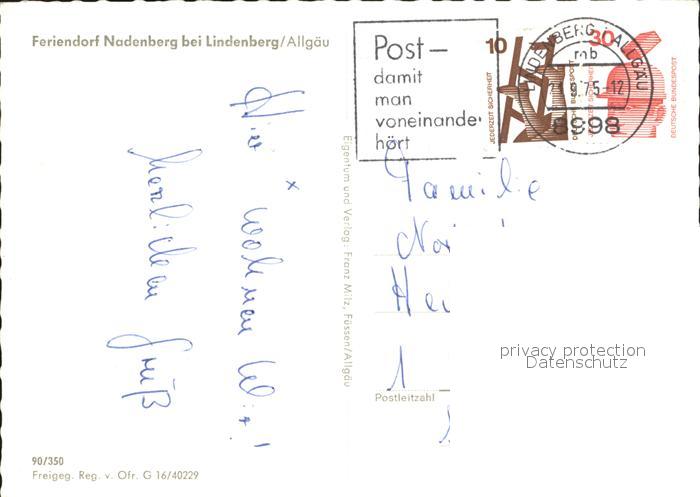 Feriendorf Nadenberg bei Lindenberg/Allgäu
Hier x wohnen wir!
Herzlichen Gruß
90/350
Freigeg. Reg. v. Ofr. G 16/40229
Eigentum und Verlag: Franz Milz, Füssen/Allgäu
Post–
damit
man
voneinander
hört
10
JEDERZEIT SICHERHEIT
DEUTSCHE BUNDESPOST
30
JEDERZEIT SICHERHEIT
DEUTSCHE BUNDESPOST
LINDENBERG i ALLGÄU
mb
9.75-12
8998
Familie
1
Postleitzahl
privacy protection
Datenschutz